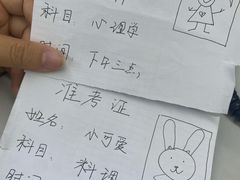 科目：心理学
时间：下午三点，
准考证
姓名：小可爱
科目：料理
时间